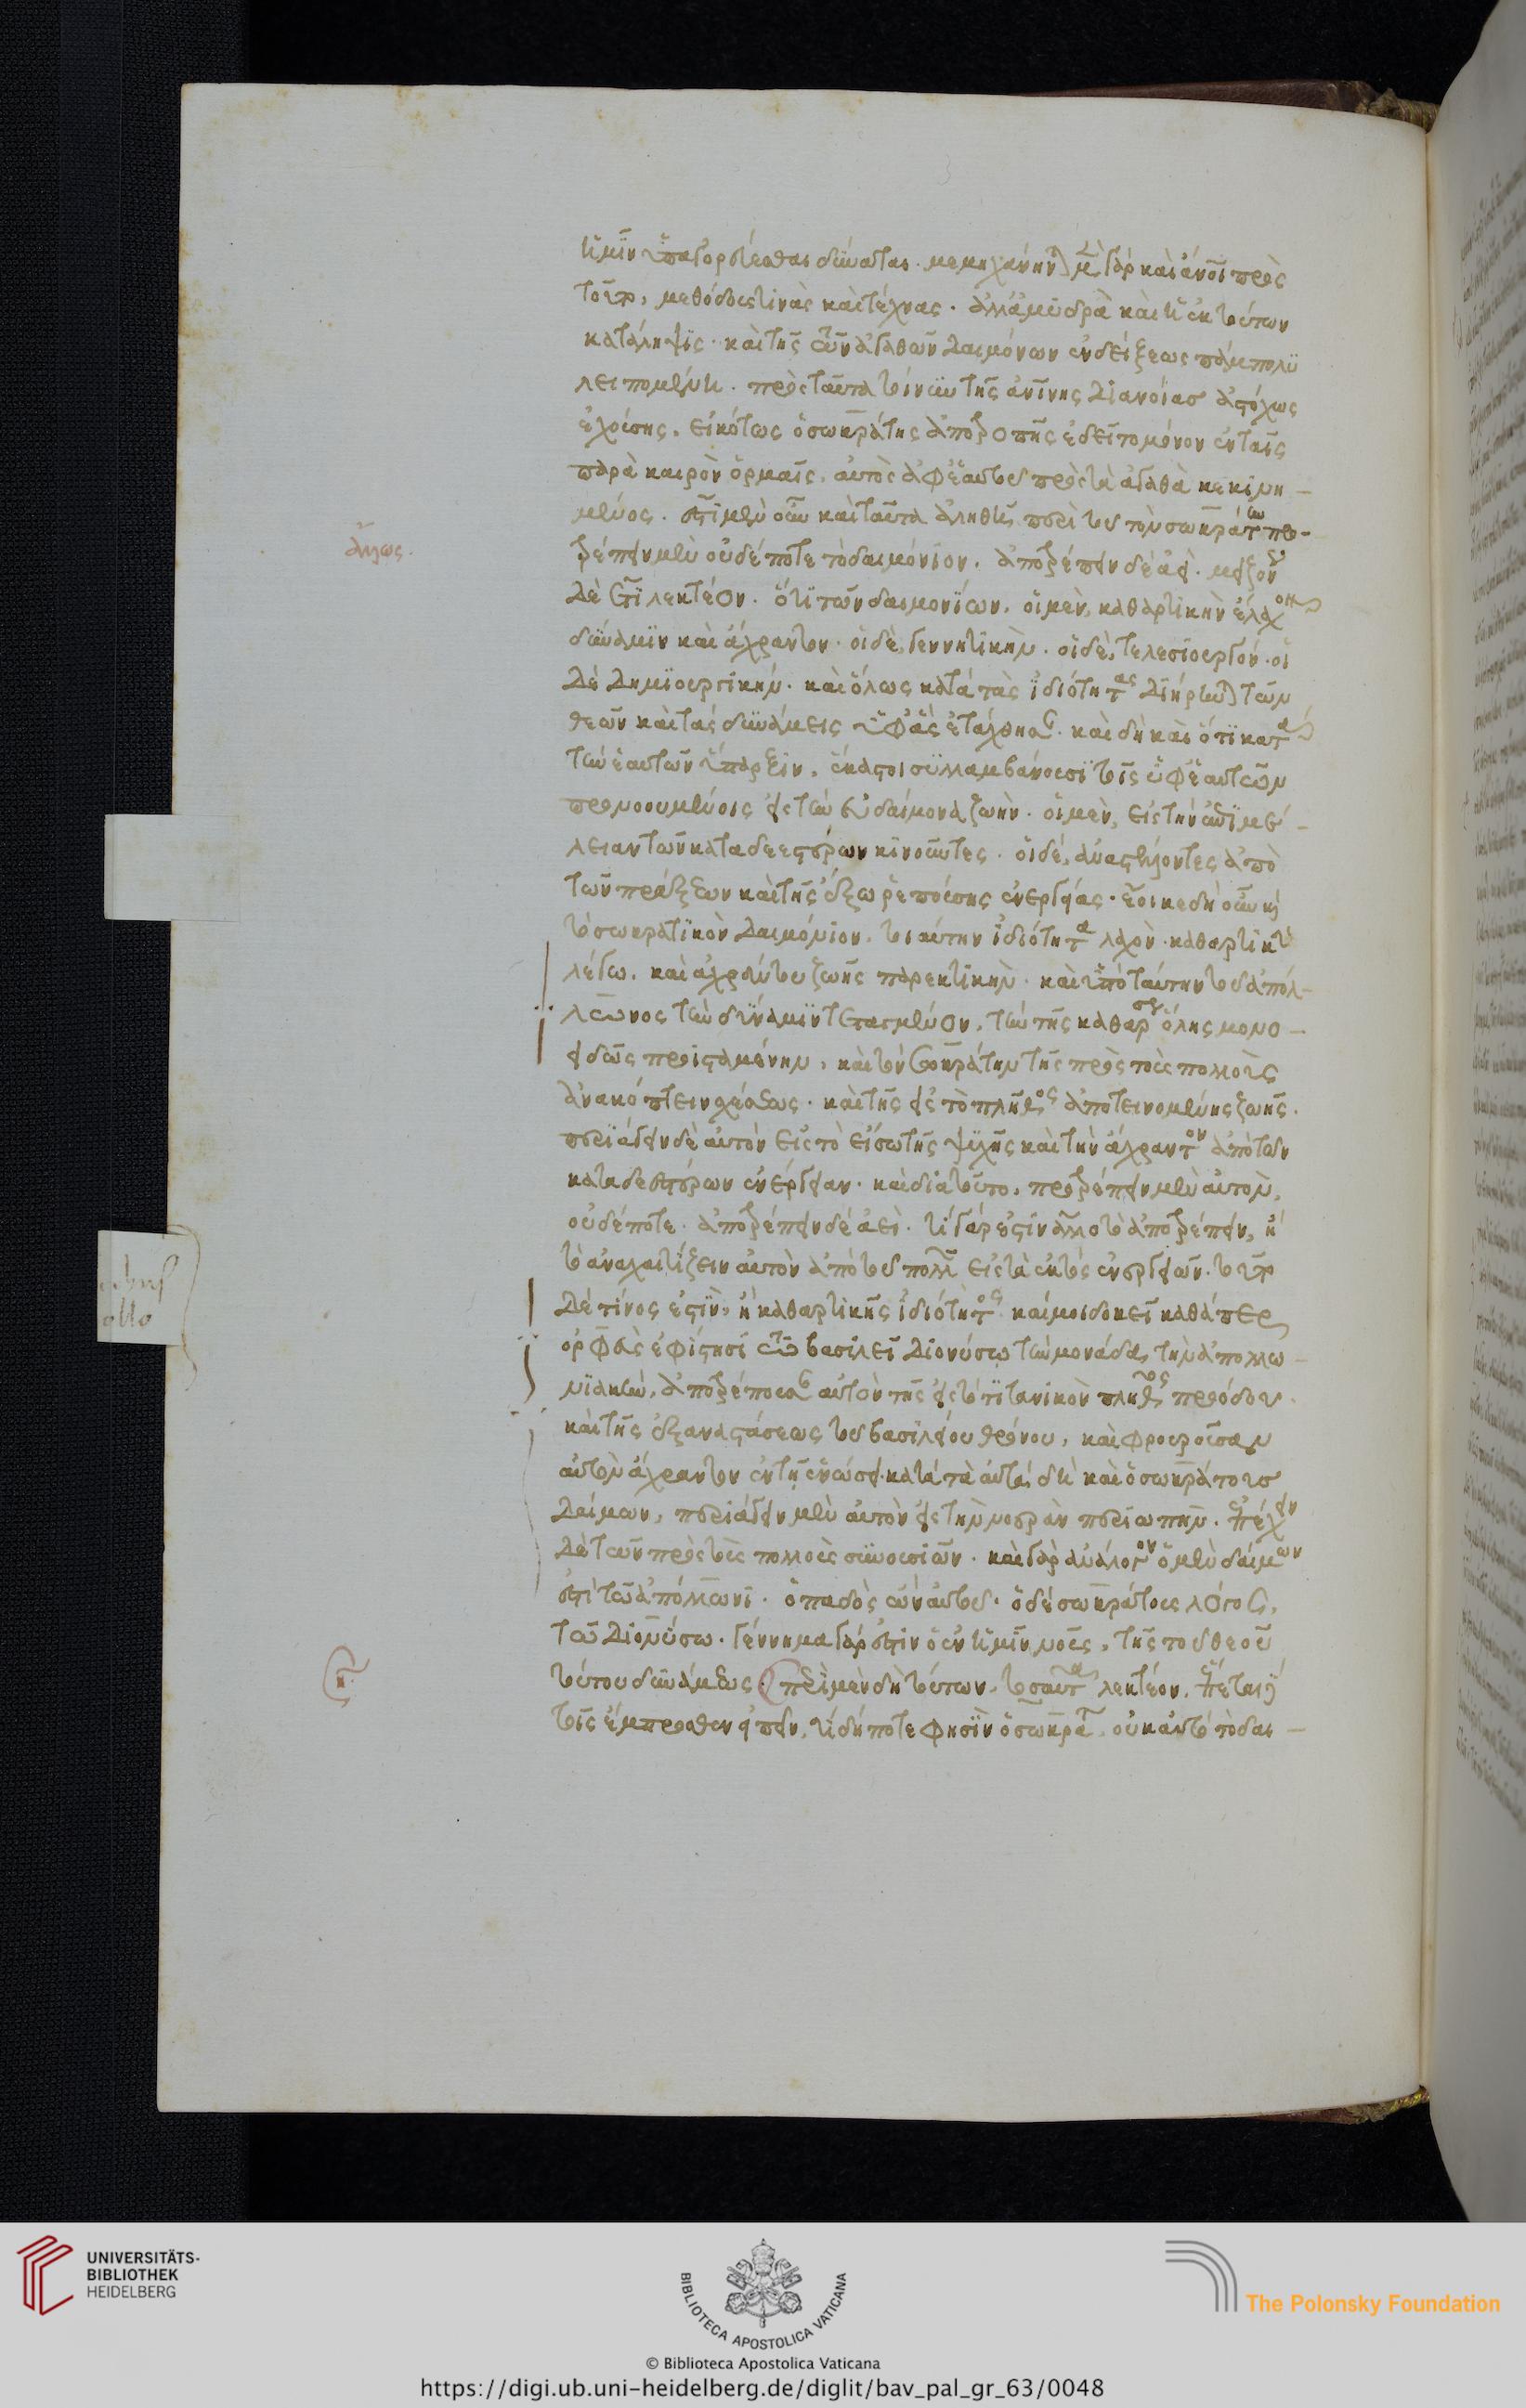 ἡμῖν ὑπαγορεύεσθαι δύναται. μεμηχάνηνται μὲν γὰρ καὶ ἄνοι πρὸς
τοῦτο, μεθόδους τινὰς καὶ τέχνας. ἀλλ' ἀμυδρὰ καὶ ἡ ἐκ τούτων
κατάληψις. καὶ τῆς τῶν ἀγαθῶν δαιμόνων ἐνδείξεως πάμπολυ
λειπομένη. πρὸς ταῦτα τοίνυν τῆς ἀνίνης διανοίας ἀστόχως
ἐχούσης. εἰκότως ὁ σωκράτης ἀποτροπῆς ἐδεῖτο μόνον ἐν ταῖς
παρὰ καιρὸν ὁρμαῖς. αὐτὸς ἀφ' ἑαυτοῦ πρὸς τὰ ἀγαθὰ κεκινη-
μένος. ἔστι μὲν οὖν καὶ ταῦτα ἀληθῆ περὶ τοῦ τὸν σωκράτω προ-
τρέπειν μὲν οὐδέποτε τὸ δαιμόνιον. ἀποτρέπειν δὲ ἀεί. μειζόνως
ἄλλως.
δὲ ἔτι λεκτέον. ὅτι τῶν δαιμονίων. οἱ μὲν, καθαρτικὴν ἔλαχον
δύναμιν καὶ ἄχραντον. οἱ δὲ, γεννητικήν. οἱ δὲ, τελεσιουργόν. οἱ
δὲ δημιουργικήν. καὶ ὅλως κατὰ τὰς ἰδιότητας διήρηνται τῶν
θεῶν καὶ τὰς δυνάμεις ὑφ' ἃς ἐτάχθησαν. καὶ δὴ καὶ ὅτι κατὰ
τὴν ἑαυτῶν ὕπαρξιν. ἕκαστοι συλλαμβάνουσι τοῖς ὑφ' ἑαυτῶν
προνοουμένοις εἰς τὴν εὐδαίμονα ζωήν. οἱ μὲν, εἰς τὴν ἐπιμέ-
λειαν τῶν καταδεεστέρων κινοῦντες. οἱ δὲ, ἀναστέλλοντες ἀπὸ
τῶν πράξεων καὶ τῆς ἔξω ῥεπούσης ἐνεργείας. ἔοικε δὴ οὖν καὶ
τὸ σωκρατικὸν δαιμόνιον. τοιαύτην ἰδιότητα λαχὸν. καθαρτικὴν
λέγω. καὶ ἀχράντου ζωῆς παρεκτικήν. καὶ ὑπὸ ταύτην τοῦ ἀπόλ-
λωνος τὴν δύναμιν τεταγμένον. τὴν τῆς καθάρσεως ὅλης μονο-
ειδῶς προϊσταμένην. καὶ τὸν σωκράτην τῆς πρὸς τοὺς πολλοὺς
ἀνακόπτειν σχέσεως. καὶ τῆς εἰς τὸ πλῆθος ἀποτεινομένης ζωῆς.
περιάγειν δὲ αὐτὸν εἰς τὸ εἴσω τῆς ψυχῆς καὶ τὴν ἄχραντον ἀπὸ τῶν
καταδεεστέρων ἐνέργειαν. καὶ διὰ τοῦτο. προτρέπειν μὲν αὐτὸν,
οὐδέποτε. ἀποτρέπειν δὲ ἀεί. τί γάρ ἐστιν ἄλλο τὸ ἀποτρέπειν, ἢ
τὸ ἀναχαιτίζειν αὐτὸν ἀπὸ τοῦ πολλῶν εἰς τὰ ἐκτὸς ἐνεργειῶν. τοῦτο
δὲ τίνος ἐστὶν, ἢ καθαρτικῆς ἰδιότητος. καί μοι δοκεῖ καθάπερ
ὀρφεὺς ἐφίστησι τῷ βασιλεῖ διονύσῳ τὴν μονάδα, τὴν ἀπολλω-
νιακὴν, ἀποτρέπουσαν αὐτὸν τῆς εἰς τὸ τιτανικὸν πλῆθος προόδου.
καὶ τῆς ἐξαναστάσεως τοῦ βασιλείου θρόνου. καὶ φρουροῦσαν
αὐτὸν ἄχραντον ἐν τῇ ἑνώσει. κατὰ τὰ αὐτὰ δὴ καὶ ὁ σωκράτους
δαίμων, περιάγειν μὲν αὐτὸν εἰς τὴν νοερὰν περιωπήν. ἐπέχειν
δὲ τῶν πρὸς τοὺς πολλοὺς συνουσιῶν. καὶ γὰρ ἀνάλογον ὁ μὲν δαίμων
ἐστὶ τῷ ἀπόλλωνι. ὀπαδὸς ὢν αὐτοῦ. ὁ δὲ σωκράτους λόγος,
τῷ διονύσῳ. γέννημα γάρ ἐστιν ὁ ἐν ἡμῖν νοῦς. τῆς τοῦ θεοῦ
τούτου δυνάμεως. περὶ μὲν δὴ τούτων. τοσαῦτα λεκτέον. ἕπεται δὲ
τοῖς ἔμπροσθεν εἰπεῖν. τί δήποτε φησὶν ὁ σωκράτης. οὐκ αὐτὸ τὸ δαι-